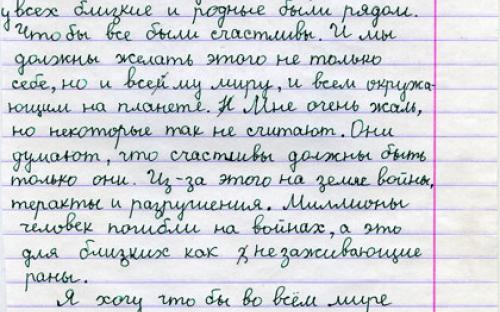 у всех близкие и родные были рядом.
Что бы все были счастливы. И мы
должны желать этого не только
себе, но и всему миру, и всем окружа-
ющим на планете. Мне очень жаль,
но некоторые так не считают. Они
думают, что счастливы должны быть
только они. Из-за этого на земле войны,
теракты и разрушения. Миллионы
человек погибли на войнах, а это
для близких как незаживающие
раны.
Я хочу что бы во всём мире